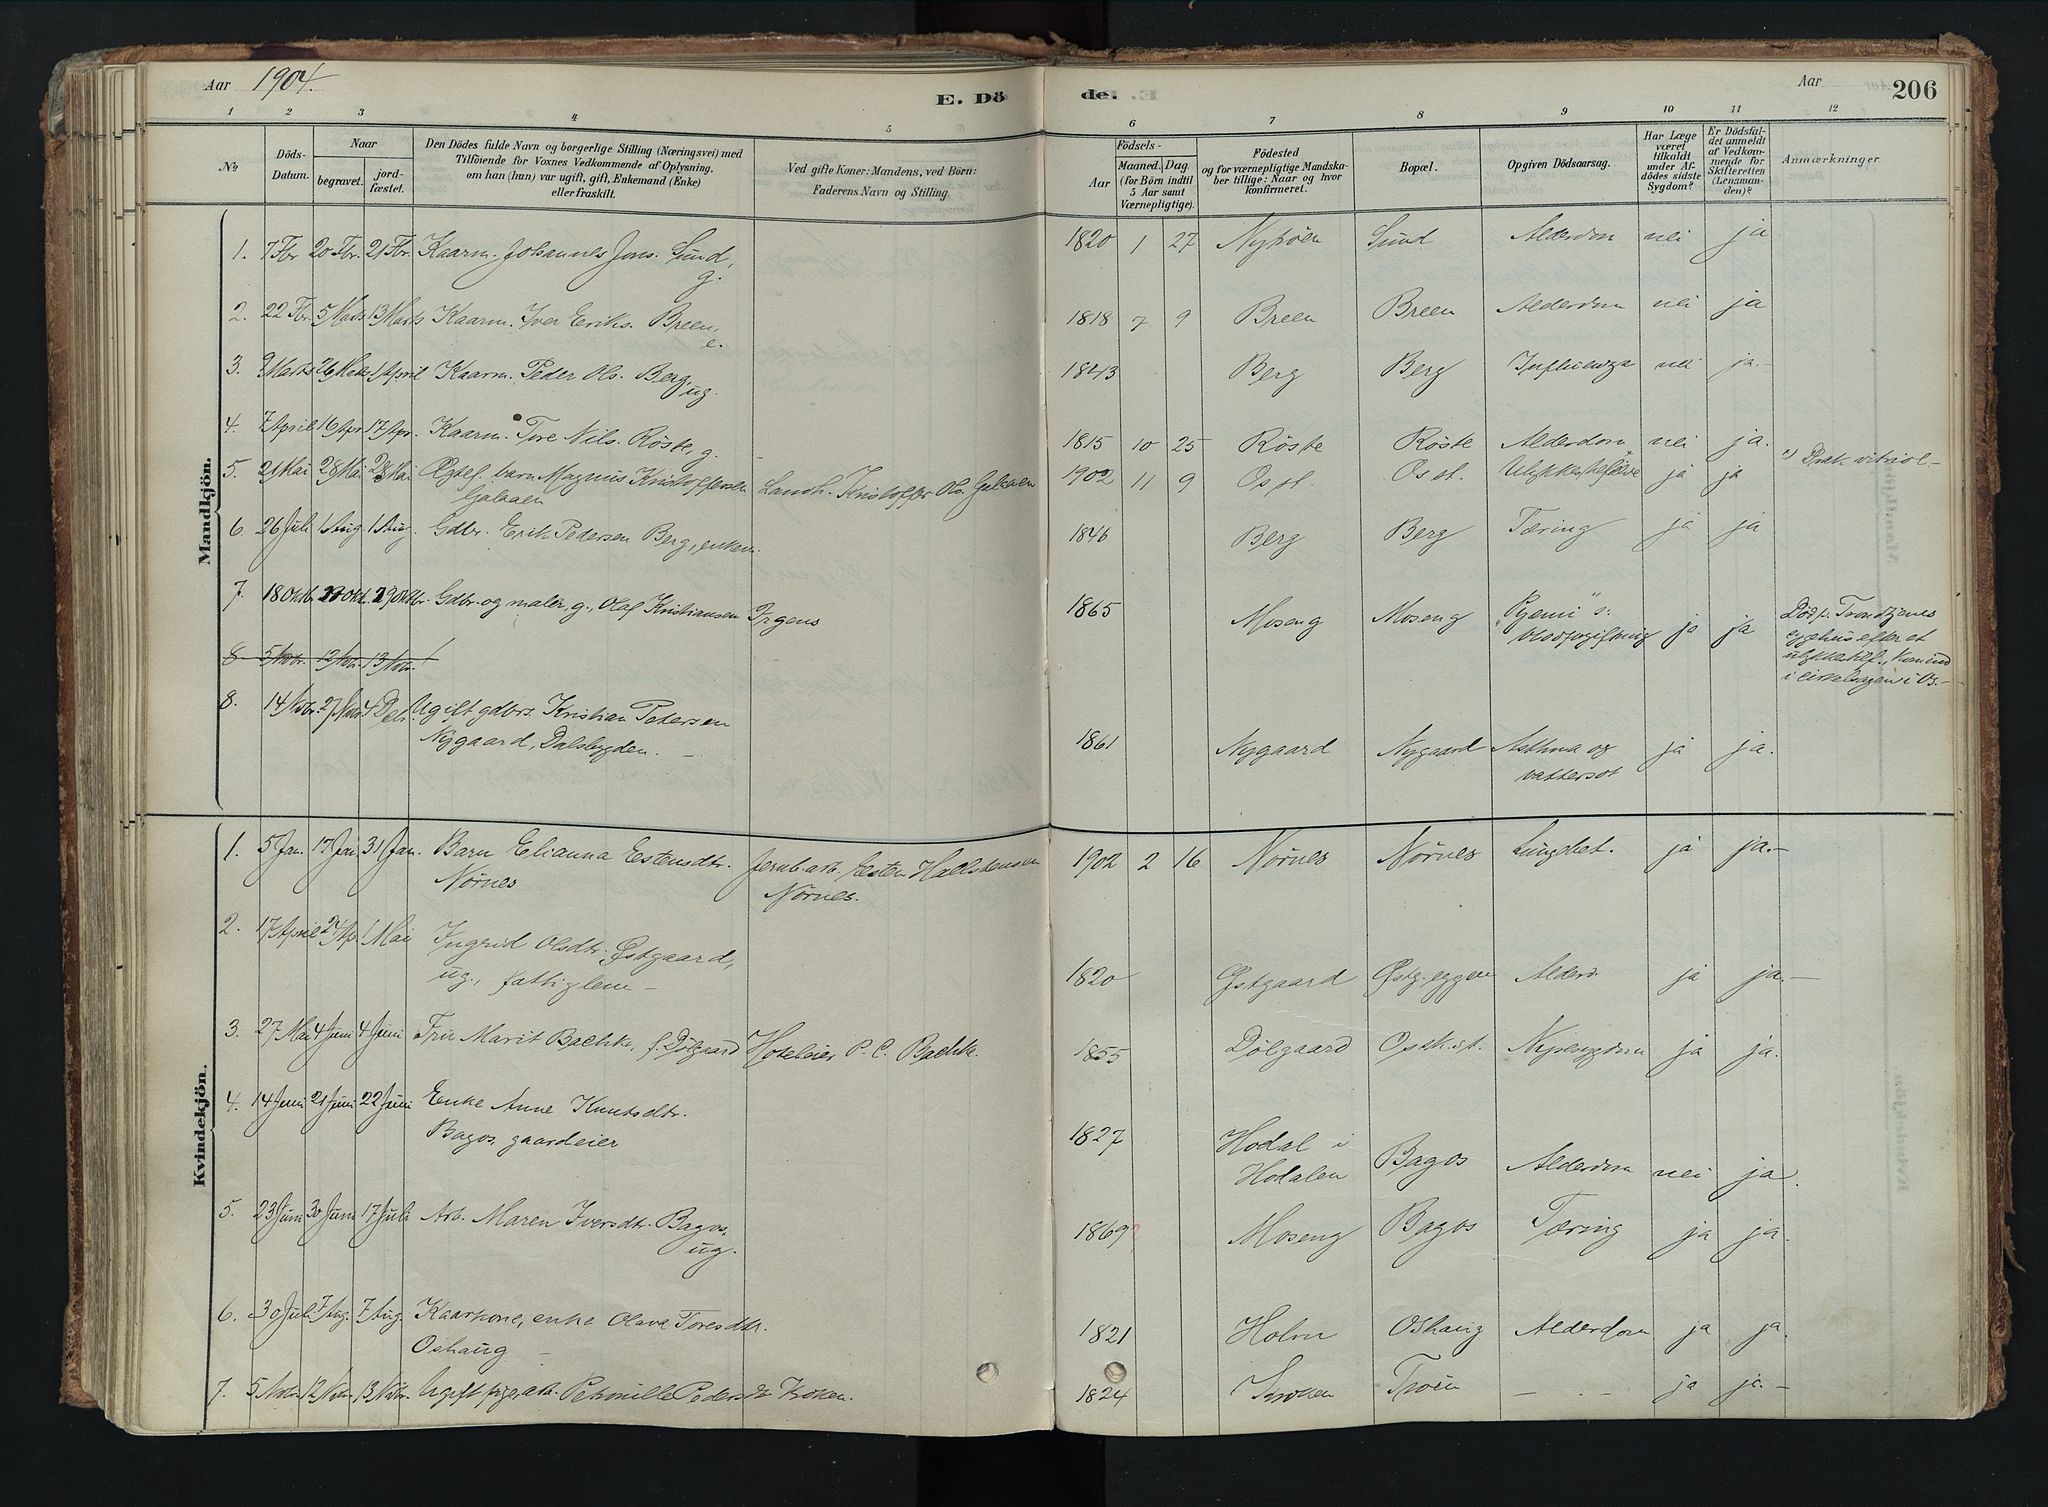 Aar 1904.
E. Dö
de.
Aar
206
1 2 3 4 5 6 7 8 9 10 11 12
No.
Döds-Datum.
Naar
begravet.
jord-fæstet.
Den Dödes fulde Navn og borgerlige Stilling (Næringsvei) med
Tilföiende for Voxnes Vedkommende af Oplysning.
om han (hun) var ugift, gift, Enkemand (Enke)
eller fraskilt.
Ved gifte Koner: Mandens, ved Börn:
Faderens Navn og Stilling.
Födsels-
Aar
Maaned. Dag.
(for Börn indtil
5 Aar samt
Værnepligtige).
Födested
og for værnepligtige Mandska-
ber tillige: Naar og hvor
konfirmeret.
Bopæl.
Opgiven Dödsaarsag.
Har Læge
været
tilkaldt
under Af-
dödes sidste
Sygdom?
Er Dödsfal-
det anmeldt
af Vedkom-
mende for
Skifteretten
(Lensman-
den)?
Anmærkninger.
Mandkjön.
1. 7 Fbr 20 Fbr. 21 Fbr. Kaarm. Johannes Jons. Sund, g. 1820 1 27 Nytrøen Sund Alderdom nei ja
2. 22 Fbr. 5 Marts 13 Marts Kaarm. Iver Eriks. Breen, e. 1818 7 9 Breen Breen Alderdom nei ja
3. 9 Marts 26 Marts 1 April Kaarm. Peder Ols. Berg, ug. 1843 Berg Berg Influenza nei ja.-
4. 7 April 16 Apr. 17 Apr. Kaarm. Tore Nils. Røste, g. 1815 10 25 Røste Røste Alderdom nei ja.
5. 21 Mai 28 Mai 28 Mai Ægtef. barn Magnus Kristoffersen Galaaen Landh. Kristoffer Ols. Galaaen 1902 11 9 Os st. Os st. Ulykkestilfælde ja ja Drak vitriol-
6. 26 Juli 1 Aug. 1 Aug. Gdbr. Erik Pedersen Berg, enkem. 1846 Berg Berg Tæring ja ja
7. 18 Oktb. Okt. 29 Oktbr. Gdbr. og maler, g., Olaf Kristiansen Irgens 1865 Moseng Moseng "Pyæmi" ɔ: blodforgiftning ja ja Død p. Trondhjems sygehus efter et ulykkestilf., Kom ind i cirkelsagen i Os.-
8. 5 Nobr. 12 Nobr. 13 Nobr. !
8. 14 Nobr. 27 Nobr 4 Dcbr Ugift gdbrs. Kristian Petersen Nygaard, Dalsbygden. - 1861 Nygaard Nygaard Asthma og vattersot ja ja.
Kvindekjön.
1. 5 Jan. 17 Jan. 31 Jan. Barn Elianna Estensdtr. Nørnes Jernb.arb. Esten Hallstensen Nørnes. 1902 2 16 Nørnes Nørnes Lungebet. ja ja.-
2. 17 April 24 Apr. 1 Mai Ingrid Olsdtr. Østgaard, ug., fattiglem - 1820 Østgaard Østg.eggen Alderd. ja ja.-
3. 27 Mai 4 Juni 4 Juni Fru Marit Bachke, f. Dølgaard Hoteleier P. C. Bachke. 1855 Dølgaard Os st. Nyresygdom ja ja.
4. 14 Juni 21 Juni 22 Juni Enke Anne Knutsdtr. Bagos, gaardeier 1827 Hodal i Hodalen Bagos Alderdom nei ja.
5. 23 Juni 30 Juni 17 Juli Arb. Maren Iversdtr. Bagos, ug. 1869 Moseng Bagos Tæring ja ja.
6. 30 Juli 7 Aug. 7 Aug. Kaarkone, enke Olava Toresdtr. Oshaug - 1821 Holm Oshaug Alderdom ja ja.
7. 5 Nobr. 12 Nobr. 13 Nobr. Ugift pige, arb. Petronille Pedersdtr. Kroken. 1824 Kroken Troen - - ja ja.-